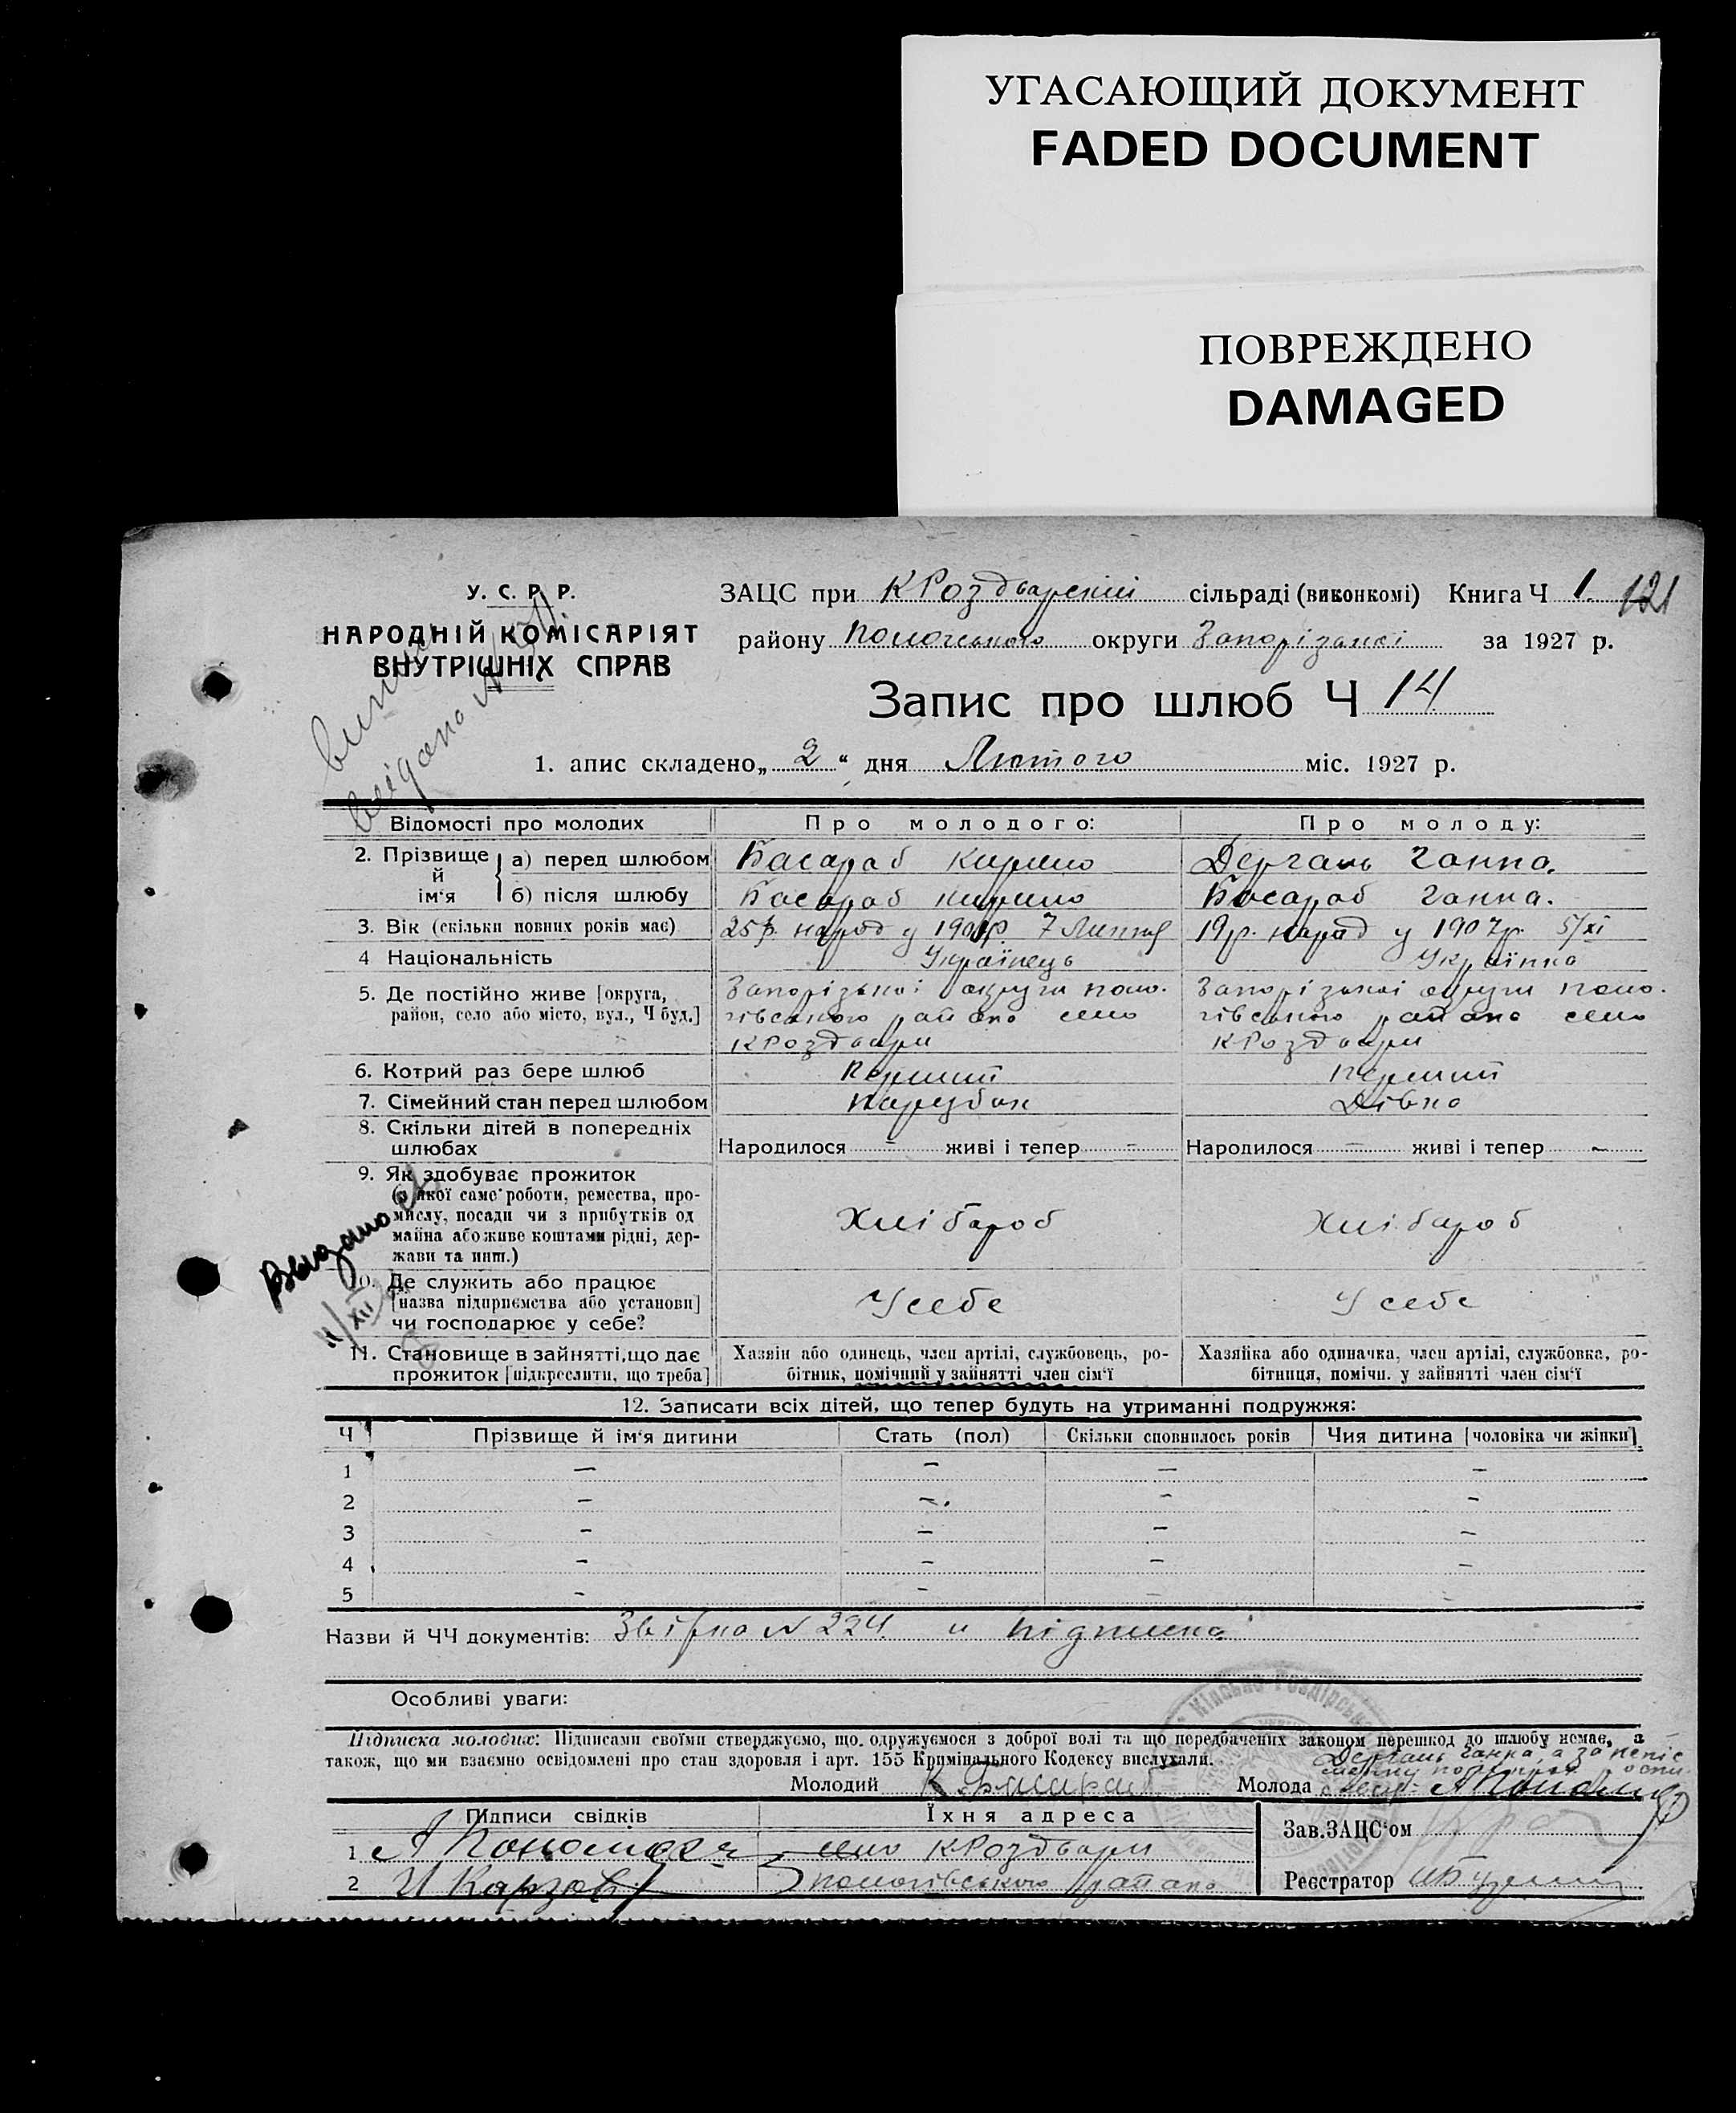 УГАСАЮЩИЙ ДОКУМЕНТ
FADED DOCUMENT
ПОВРЕЖДЕНО
DAMAGED
У. С. Р. Р.
НАРОДНІЙ КОМІСАРІЯТ
ВНУТРІШНІХ СПРАВ
ЗАЦС при КРоздварский сільраді (виконкомі) Книга Ч 1. 121
району округи Запорізької за 1927 р.
Запис про шлюб Ч 14
1. апис складено „ 2 “ дня Лютого міс. 1927 р.
Відомості про молодих Про молодого: Про молоду:
2. Прізвище й ім‘я а) перед шлюбом Басараб Кирило Дергань Ганна.
б) після шлюбу Басараб Кирило Басараб Ганна.
3. Вік (скільки повних років має) 25р. народ у 1901р. 7 19р. народ у 1907р. 5/XI
4 Національність Українець Українка
5. Де постійно живе [округа, район, село або місто, вул., Ч буд.] Запорізької округи Поло-
гівського району село
КРоздори
Запорізької округи Поло-
гівського району село
КРоздори
6. Котрий раз бере шлюб Перший Перший
7. Сімейний стан перед шлюбом Парубок Дівка
8. Скільки дітей в попередніх шлюбах Народилося – живі і тепер – Народилося – живі і тепер –
9. Як здобуває прожиток
(з якої саме роботи, ремества, про-
мислу, посади чи з прибутків од
майна або живе коштами рідні, дер-
жави та инш.)
Хлібароб Хлібароб
10. Де служить або працює
[назва підприємства або установи]
чи господарює у себе?
У себе У себе
11. Становище в зайнятті, що дає
прожиток [підкреслити, що треба]
Хазяїн або одинець, член артілі, службовець, ро-
бітник, помічний у зайнятті член сім‘ї
Хазяйка або одиначка, член артілі, службовка, ро-
бітниця, помічн. у зайнятті член сім‘ї
12. Записати всіх дітей, що тепер будуть на утриманні подружжя:
Ч Прізвище й ім‘я дитини Стать (пол) Скільки сповнилось років Чия дитина [чоловіка чи жінки]
1 – – – –
2 – – – –
3 – – – –
4 – – – –
5 – – – –
Назви й ЧЧ документів: Звірка N 224 и підписка
Особливі уваги:
Підписка молодих: Підписами своїми стверджуємо, що одружуємося з доброї волі та що передбачених законом перешкод до шлюбу немає, а
також, що ми взаємно освідомлені про стан здоровля і арт. 155 Кримінального Кодексу вислухали.
Дергань Ганна, а за непіс
Молодий К. Басараб Молода
Підписи свідків Їхня адреса Зав.ЗАЦС‘ом
1 А Пономар село КРоздори
2 И Пологівського району Реєстратор
Выдано
11/XII